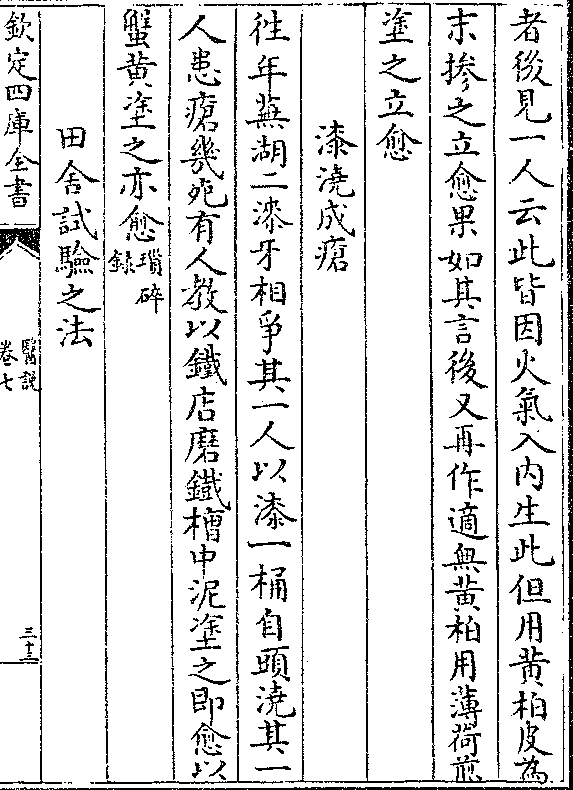 者後見一人云此皆因火氣入内生此但用黄柏皮為
末摻之立愈果如其言後又再作適無黄柏用薄荷煎
塗之立愈
漆澆成瘡
徃年蕪湖二漆牙相爭其一人以漆一桶自頭澆其一
人患瘡幾死有人教以鐵店磨鐵槽中泥塗之即愈以
蟹黄塗之亦愈瑣碎
録
田舍試驗之法
欽定四庫全書
醫説
卷七
三十三